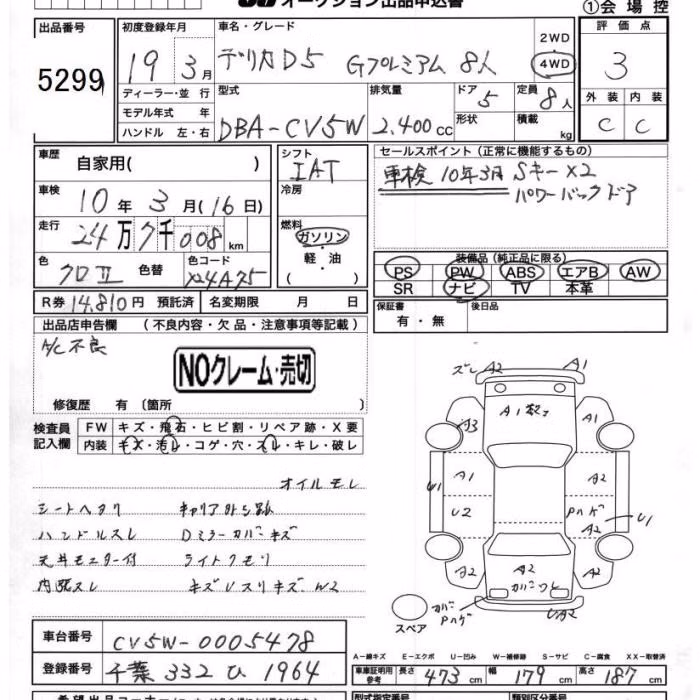 オークション出品申込書
①会場控
出品番号
5299
初度登録年月
19年3月
車名・グレード
デリカD5 Gプレミアム 8人
2WD
4WD
評価点
3
外装 内装
C C
ディーラー・並行
モデル年式 年
ハンドル 左・右
型式
DBA-CV5W
排気量
2,400cc
ドア 5
形状
定員 8人
積載 kg
車歴
自家用( )
シフト
IAT
セールスポイント(正常に機能するもの)
車検 10年3月 Sキー×2
パワーバックドア
車検
10年3月(16日)
冷房
走行
24万7千008km
燃料
ガソリン
・
軽・油
色
クロⅡ
色替
色コード
X24A75
装備品(純正品に限る)
PS PW ABS エアB AW
SR ナビ TV 本革
R券 14,810円 預託済 名変期限 月 日
保証書
有・無
後日品
出品店申告欄 (不良内容・欠品・注意事項等記載)
A/C不良
NOクレーム・売切
修復歴 有〔箇所 〕
検査員
記入欄
FW キズ・飛石・ヒビ割・リペア跡・X要
内装 キズ・汚レ・コゲ・穴・スレ・キレ・破レ
オイルモレ
シートヘタリ キャリア外シ跡
ハンドルスレ Dミラーカバーキズ
天井モニター付 ライトクモリ
内張スレ キズUスリキズ W2
ズレ A2 A1
A1 飛石
A3 A1
U1 A1 A2
U2 Pハゲ
A2 U1
A2 A2 A2
カバーツレ
カバー
Pハゲ
UA2
スペア
A-線キズ E-エクボ U-凹み W-補修跡 S-サビ C-腐食 XX-取替済
車台番号
CV5W-0005478
登録番号
千葉 332 ひ 1964
車庫証明用
参考
長さ 473cm 幅 179cm 高さ 187cm
希望出品コーナー
型式指定番号
類別区分番号